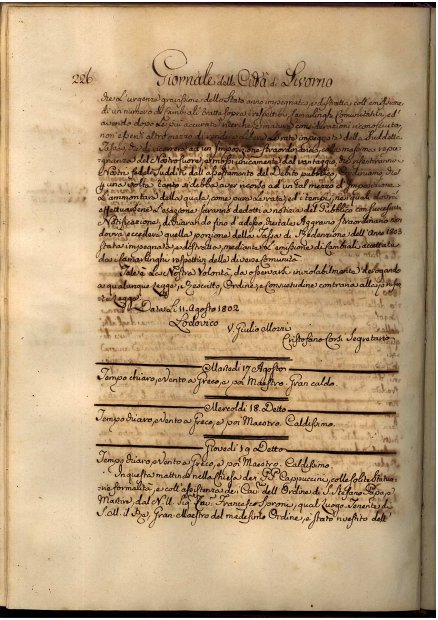 226 Giornale della Città di Livorno
che l'urgenze gravissime dello Stato anno impegnata, e distratta coll'emissione
di un numero di Cambiali tratte sopra i respettivi Camarlinghi Comunitativi, ed
avendo dopo le più accurate ricerche, e mature considerazioni riconosciuto,
non esservi altro mezzo di rendere libere le rate impegnate della suddetta
Tassa, che di ricorrere ad un Imposizione straordinaria, colla massima repu
gnanza del Nostro cuore
Nostri fedeli Sudditi dall'assestamento del Debito pubblico, Ordiniamo che
una volta tanto si debba aver ricorso ad un tal mezzo di Imposizione
L'ammontare della quale, come pure le rate, ed i tempi, nei quali dovrà
effettuarsene l'esazione saranno dedotti a notizia del Pubblico con
Notificazione, dichiarando fino d'adesso, che tale Aggravio straordinario non
dovrà eccedere quella porzione della Tassa di Redenzione dell'Anno 1803
stata impegnata, e distratta, mediante l'emissione di Cambiali accettate
da i Camarlinghi respettivi delle diverse Comunità.
Tale è la Nostra Volontà, da osservarsi inviolabilmente derogando
a qualunque Legge, Rescritto, Ordine, e Consuetudine contraria alla presente
Legge.
Data li 11 Agosto 1802
Lodovico
V. Giulio Mozzi
Cristofano Corsi Segretario
Martedi 17 Agosto
Tempo chiaro, e Vento a Greco, e poi Maestro. Gran caldo
Mercoldi 18 Detto
Tempo chiaro, e Vento a Greco, e poi Maestro. Caldissimo.
Giovedi 19 Detto
Tempo chiaro, e Vento a Greco, e poi Maestro. Caldissimo.
In questa mattina nella Chiesa dei PP. Cappuccini, colle solite
formalità, e coll'assistenza dei Cav. dell'Ordine di S. Stefano Papa, e
Martire, dal N. U. Sig. Cav. Francesco Sproni, qual Luogo Tenente di
S. M. il Re, Gran Maestro del medesimo Ordine, è stato rivestito dell'